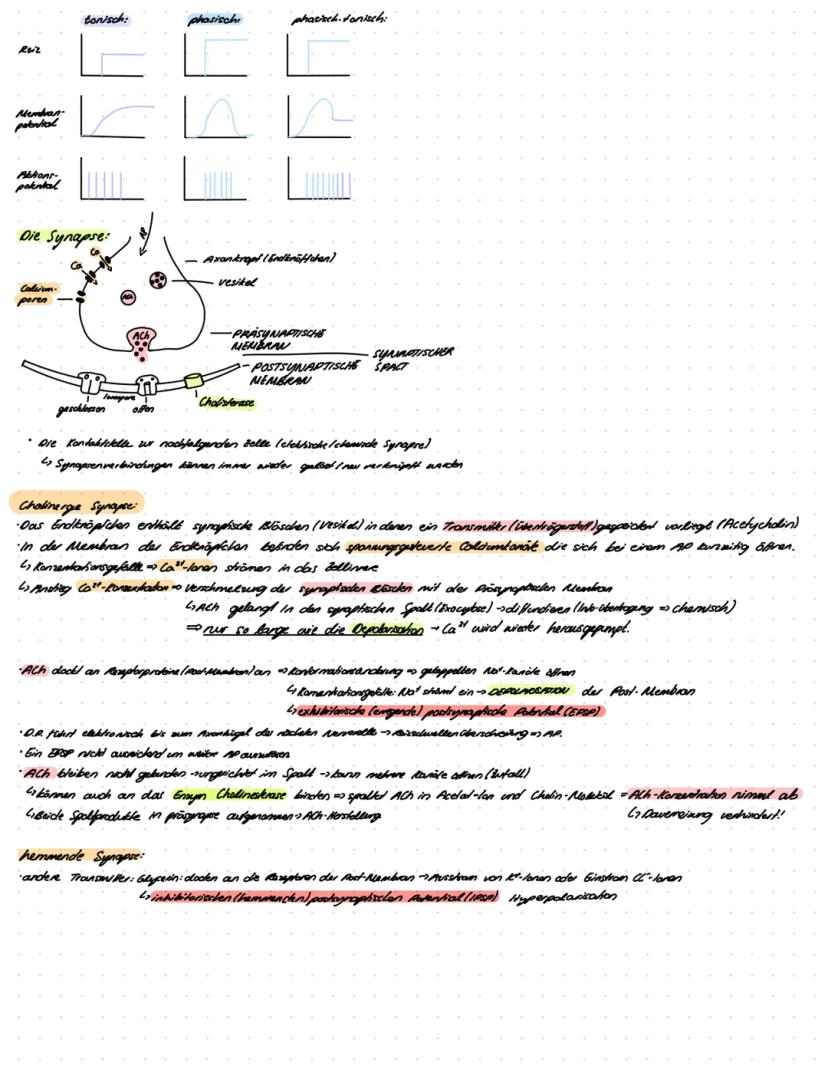 tonisch: phasisch: phasisch-tonisch:
Reiz
Membran-
potential
Aktions-
potential
Die Synapse:
AP
Ca
Ca
Axonkopf (Endknöpfchen)
Vesikel
Calcium-
poren
ACh
ACh
PRÄSYNAPTISCHE
MEMBRAN
SYNAPTISCHER
SPALT
POSTSYNAPTISCHE
MEMBRAN
Ionenpore
geschlossen offen
Cholisterase
· Die Kontaktstelle zur nachfolgenden Zelle (elektrische/chemische Synapse)
↳ Synapsenverbindungen können immer wieder gelöst/neu verknüpft werden
Cholinerge Synapse:
· Das Endknöpfchen enthält synaptische Bläschen (Vesikel) in denen ein Transmitter (Überträgerstoff) gespeichert vorliegt (Acetycholin)
· In der Membran der Endknöpfchen befinden sich spannungsgesteuerte Calciumkanäle die sich bei einem AP kurzzeitig öffnen.
↳ Konzentrationsgefälle ⇒ Ca²⁺-Ionen strömen in das Zellinnere
↳ Anstieg Ca²⁺-Konzentration ⇒ Verschmelzung der synaptischen Bläschen mit der Präsynaptischen Membran
↳ ACh gelangt in den synaptischen Spalt (Exocytose) → diffundieren (Info-Übertragung ⇒ chemisch)
⇒ nur so lange wie die Depolarisation → Ca²⁺ wird wieder herausgepumpt.
· ACh dockt an Rezeptorproteine (Post-Membran) an ⇒ Konformationsänderung ⇒ gekoppelten Na⁺-Kanäle öffnen
↳ Konzentrationsgefälle: Na⁺ strömt ein → DEPOLARISATION der Post-Membran
↳ exhibitorische (erregende) postsynaptische Potential (EPSP)
· D.P. führt elektronisch bis zum Axonhügel der nächsten Nervenzelle → Reizschwellenüberschreitung ⇒ AP.
· Ein EPSP nicht ausreichend um weitere AP auszulösen
· ACh bleiben nicht gebunden → ungerichtet im Spalt → kann mehrere Kanäle öffnen (Zufall)
↳ können auch an das Enzym Cholinesterase binden ⇒ spaltet ACh in Acetat-Ion und Cholin-Molekül = ACh-Konzentration nimmt ab
↳ Beide Spaltprodukte in präsynapse aufgenommen → ACh-Herstellung
↳ Dauerreizung verhindert!
hemmende Synapse:
· andere Transmitter: Glycerin: docken an die Rezeptoren der Post-Membran → Ausstrom von K⁺-Ionen oder Einstrom Cl⁻-Ionen
↳ inhibitorischen (hemmenden) postsynaptischen Potential (IPSP) Hyperpolarisation